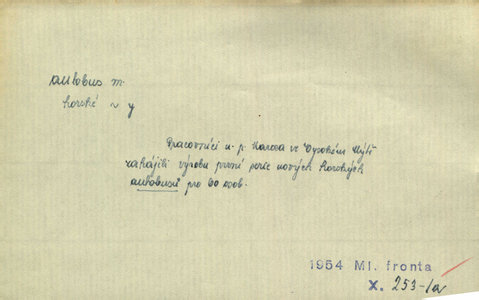 autobus m.
horské ~ y
Pracovníci n. p. Karosa ve Vysokém Mýtě
zahájili výrobu první serie nových horských
autobusů pro 60 osob.
1954 Ml. fronta
X. 253-1a